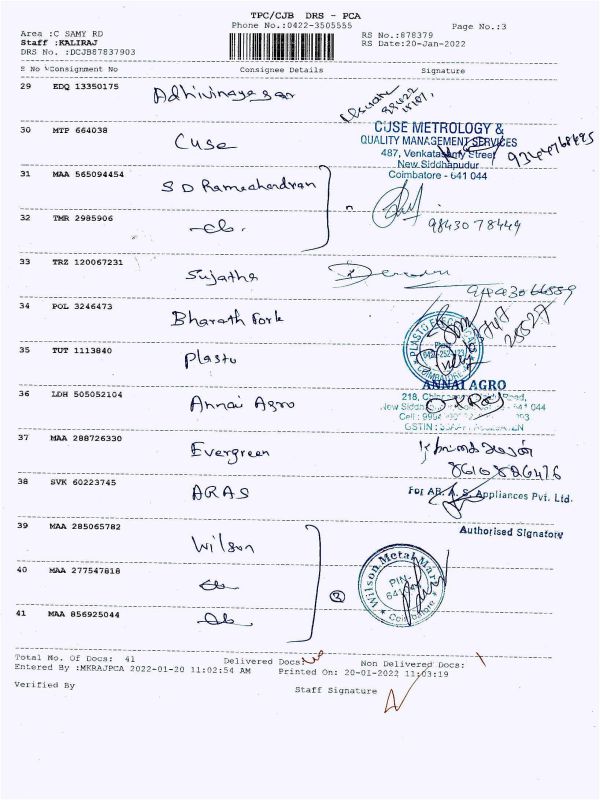 TPC/CJB DRS - PCA
Phone No.:0422-3505555
Page No.:3
Area :C SAMY RD
Staff :KALIRAJ
DRS No. :DCJB87837903
RS No.:878379
RS Date:20-Jan-2022
S No Consignment No Consignee Details Signature
29 EDQ 13350175 Adhivinayagar
30 MTP 664038 Cuse
CUSE METROLOGY &
QUALITY MANAGEMENT SERVICES
487, Venkatasamy Street
New Siddhapudur
Coimbatore - 641 044
31 MAA 565094454 S D Ramachandran
32 TMR 2985906 -do-
98430 78449
33 TRZ 120067231 Sujatha
34 POL 3246473 Bharath Fork
35 TUT 1113840 Plasto
36 LDH 505052104 Annai Agro
ANNAI AGRO
218,
641 044
37 MAA 288726330 Evergreen
8610826476
38 SVK 60223745 ARAS
For AR. A. S. Appliances Pvt. Ltd.
Authorised Signatory
39 MAA 285065782 Wilson
40 MAA 277547818 do
41 MAA 856925044 do
Wilson Metal Mart
PIN-
Coimbatore
Total No. Of Docs: 41 Delivered Docs: Non Delivered Docs: 1
Entered By :MKRAJPCA 2022-01-20 11:02:54 AM Printed On: 20-01-2022 11:03:19
Verified By
Staff Signature